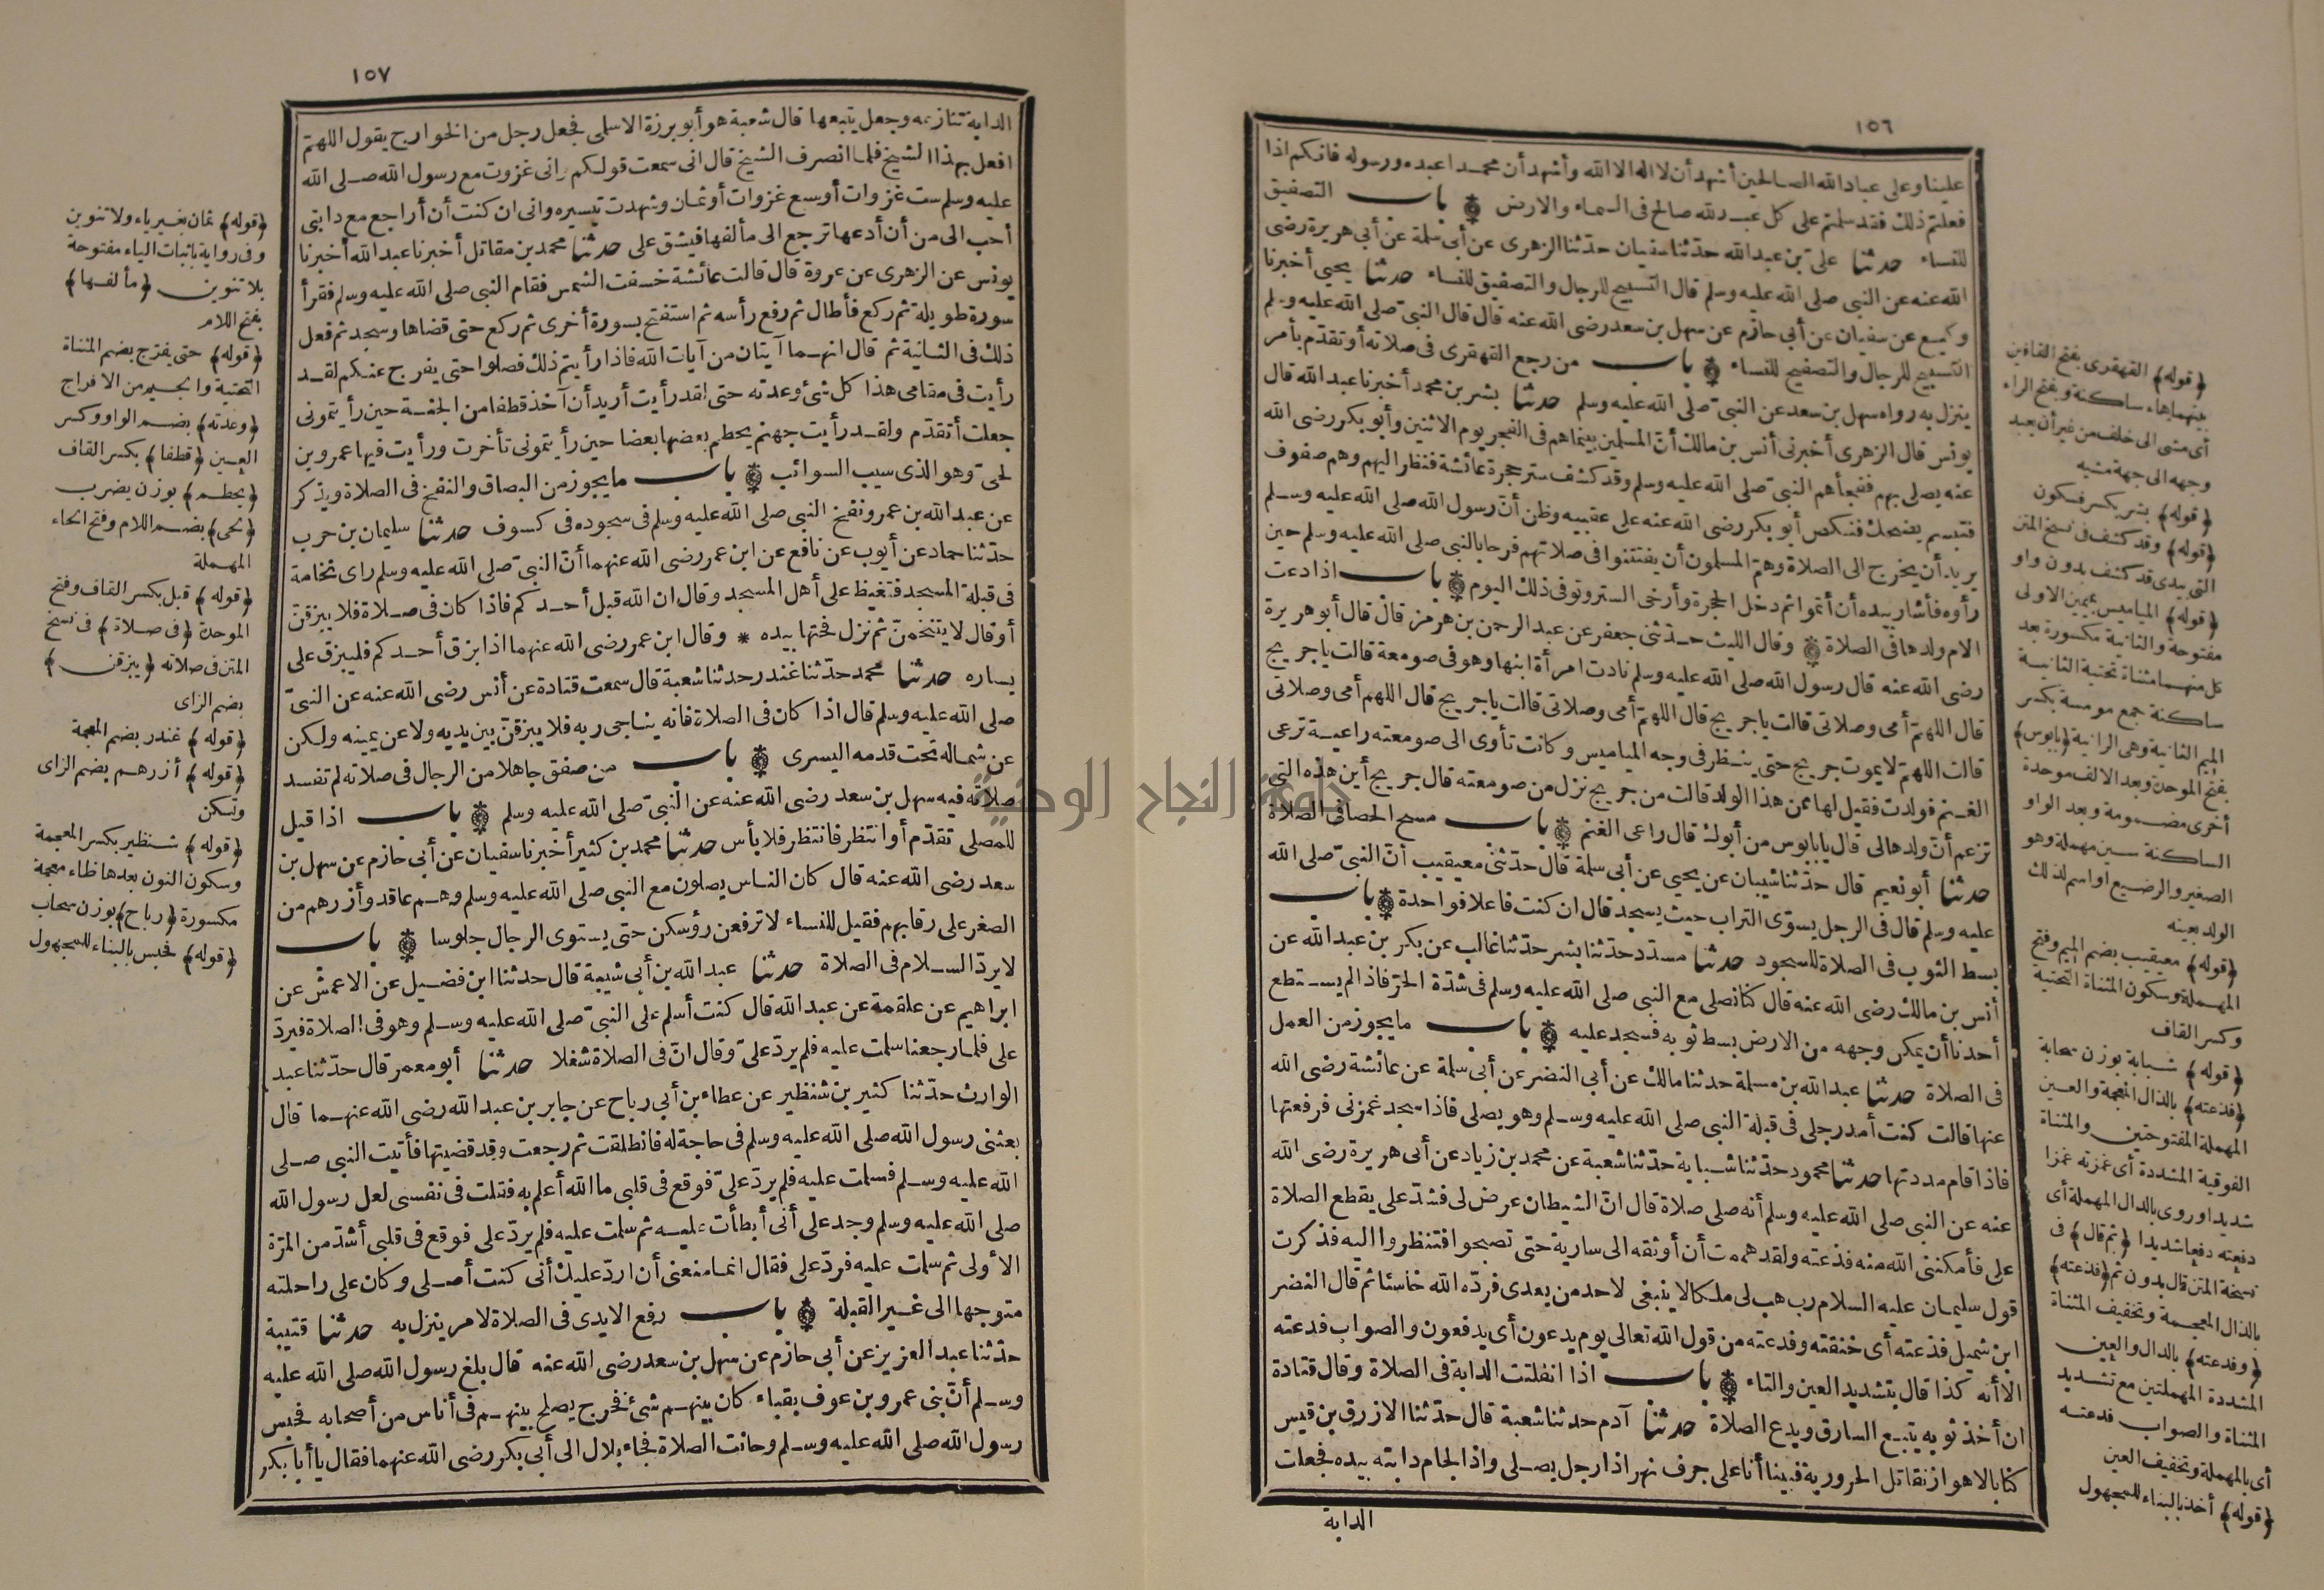 ١٥٦
علينا وعلى عباد الله الصالحين أشهد أن لا اله الا الله وأشهد أن محمدا عبده ورسوله فانكم اذا
فعلتم ذلك فقد سلمتم على كل عبد لله صالح فى السماء والارض باب التصفيق
للنساء حدثنا على بن عبد الله حدثنا سفيان حدثنا الزهرى عن أبى سلمة عن أبى هريرة رضى
الله عنه عن النبى صلى الله عليه وسلم قال التسبيح للرجال والتصفيق للنساء حدثنا يحيى أخبرنا
وكيع عن سفيان عن أبى حازم عن سهل بن سعد رضى الله عنه قال قال النبى صلى الله عليه وسلم
التسبيح للرجال والتصفيح للنساء باب من رجع القهقرى فى صلاته أو تقدم بأمر
ينزل به رواه سهل بن سعد عن النبى صلى الله عليه وسلم حدثنا بشر بن محمد أخبرنا عبد الله قال
يونس قال الزهرى أخبرنى أنس بن مالك أن المسلمين بينما هم فى الفجر يوم الاثنين وأبو بكر رضى الله
عنه يصلى بهم ففجأهم النبى صلى الله عليه وسلم وقد كشف ستر حجرة عائشة فنظر اليهم وهم صفوف
فتبسم يضحك فنكص أبو بكر رضى الله عنه على عقبيه وظن أن رسول الله صلى الله عليه وسلم
يريد أن يخرج الى الصلاة وهم المسلمون أن يفتتنوا فى صلاتهم فرحا بالنبى صلى الله عليه وسلم حين
رأوه فأشار بيده أن أتموا ثم دخل الحجرة وأرخى الستر وتوفى ذلك اليوم باب اذا دعت
الام ولدها فى الصلاة وقال الليث حدثنى جعفر عن عبد الرحمن بن هرمز قال قال أبو هريرة
رضى الله عنه قال رسول الله صلى الله عليه وسلم نادت امرأة ابنها وهو فى صومعة قالت يا جريج
قال اللهم أمى وصلاتى قالت يا جريج قال اللهم أمى وصلاتى قالت يا جريج قال اللهم أمى وصلاتى
قالت اللهم لا يموت جريج حتى ينظر فى وجه المياميس وكانت تأوى الى صومعته راعية ترعى
الغنم فولدت فقيل لها ممن هذا الولد قالت من جريج نزل من صومعته قال جريج أين هذه التى
تزعم أن ولدها لى قال يا بابوس من أبوك قال راعى الغنم باب مسح الحصا فى الصلاة
حدثنا أبو نعيم قال حدثنا شيبان عن يحيى عن أبى سلمة قال حدثنى معيقيب أن النبى صلى الله
عليه وسلم قال فى الرجل يسوى التراب حيث يسجد قال ان كنت فاعلا فواحدة باب
بسط الثوب فى الصلاة للسجود حدثنا مسدد حدثنا بشر حدثنا غالب عن بكر بن عبد الله عن
أنس بن مالك رضى الله عنه قال كنا نصلى مع النبى صلى الله عليه وسلم فى شدة الحر فاذا لم يستطع
أحدنا أن يمكن وجهه من الارض بسط ثوبه فسجد عليه باب ما يجوز من العمل
فى الصلاة حدثنا عبد الله بن مسلمة حدثنا مالك عن أبى النضر عن أبى سلمة عن عائشة رضى الله
عنها قالت كنت أمد رجلى فى قبلة النبى صلى الله عليه وسلم وهو يصلى فاذا سجد غمزنى فرفعتها
فاذا قام مددتها حدثنا محمود حدثنا شبابة حدثنا شعبة عن محمد بن زياد عن أبى هريرة رضى الله
عنه عن النبى صلى الله عليه وسلم أنه صلى صلاة قال ان الشيطان عرض لى فشد على يقطع الصلاة
على فأمكننى الله منه فذعته ولقد هممت أن أوثقه الى سارية حتى تصبحوا فتنظروا اليه فذكرت
قول سليمان عليه السلام رب هب لى ملكا لا ينبغى لاحد من بعدى فرده الله خاسئا ثم قال النضر
ابن شميل فذعته أى خنقته وفدعته من قول الله تعالى يوم يدعون أى يدفعون والصواب فدعته
الا أنه كذا قال بتشديد العين والتاء باب اذا انفلتت الدابة فى الصلاة وقال قتادة
ان أخذ ثوبه يتبع السارق ويدع الصلاة حدثنا آدم حدثنا شعبة قال حدثنا الازرق بن قيس
كنا بالاهواز نقاتل الحرورية فبينا أنا على جرف نهر اذا رجل يصلى واذا لجام دابته بيده فجعلت
الدابة
(قوله) القهقرى بفتح القافين
بينهما هاء ساكنة وبفتح الراء
أى مشى الى خلف من غير أن يعيد
وجهه الى جهة مشيه
(قوله) بشر بكسر فسكون
(قوله) وقد كشف فى نسخ المتن
التى بيدى قد كشف بدون واو
(قوله) المياميس بميمين الاولى
مفتوحة والثانية مكسورة بعد
كل منهما مثناة تحتية الثانية
ساكنة جمع مومسة بكسر
الميم الثانية وهى الزانية (بابوس)
بفتح الموحدة وبعد الالف موحدة
أخرى مضمومة وبعد الواو
الساكنة سين مهملة وهو
الصغير والرضيع او اسم لذلك
الولد بعينه
(قوله) معيقيب بضم الميم وفتح
المهملة وسكون المثناة التحتية
وكسر القاف
(قوله) شبابة بوزن سحابة
(فذعته) بالذال المعجمة والعين
المهملة المفتوحتين والمثناة
الفوقية المشددة أى غمزته غمزا
شديدا وروى بالدال المهملة أى
دفعته دفعا شديدا (ثم قال) فى
نسخة المتن قال بدون ثم (فذعته)
بالذال المعجمة وتخفيف المثناة
(وفدعته) بالدال والعين
المشددة المهملتين مع تشديد
المثناة والصواب فدعته
أى بالمهملة وتخفيف العين
(قوله) أخذ بالبناء للمجهول
١٥٧
الدابة تنازعه وجعل يتبعها قال شعبة هو أبو برزة الاسلمى فجعل رجل من الخوارج يقول اللهم
افعل بهذا الشيخ فلما انصرف الشيخ قال انى سمعت قولكم وانى غزوت مع رسول الله صلى الله
عليه وسلم ست غزوات أو سبع غزوات أو ثمان وشهدت تيسيره وانى ان كنت أن أراجع مع دابتى
أحب الى من أن أدعها ترجع الى مألفها فيشق على حدثنا محمد بن مقاتل أخبرنا عبد الله أخبرنا
يونس عن الزهرى عن عروة قال قالت عائشة خسفت الشمس فقام النبى صلى الله عليه وسلم فقرأ
سورة طويلة ثم ركع فأطال ثم رفع رأسه ثم استفتح بسورة أخرى ثم ركع حتى قضاها وسجد ثم فعل
ذلك فى الثانية ثم قال انهما آيتان من آيات الله فاذا رأيتم ذلك فصلوا حتى يفرج عنكم لقد
رأيت فى مقامى هذا كل شئ وعدته حتى لقد رأيت أريد أن آخذ قطفا من الجنة حين رأيتمونى
جعلت أتقدم ولقد رأيت جهنم يحطم بعضها بعضا حين رأيتمونى تأخرت ورأيت فيها عمرو بن
لحى وهو الذى سيب السوائب باب ما يجوز من البصاق والنفخ فى الصلاة ويذكر
عن عبد الله بن عمرو نفخ النبى صلى الله عليه وسلم فى سجوده فى كسوف حدثنا سليمان بن حرب
حدثنا حماد عن أيوب عن نافع عن ابن عمر رضى الله عنهما أن النبى صلى الله عليه وسلم راى نخامة
فى قبلة المسجد فتغيظ على أهل المسجد وقال ان الله قبل أحدكم فاذا كان فى صلاة فلا يبزقن
أو قال لا يتنخمن ثم نزل فحتها بيده * وقال ابن عمر رضى الله عنهما اذا بزق أحدكم فليبزق على
يساره حدثنا محمد حدثنا غندر حدثنا شعبة قال سمعت قتادة عن أنس رضى الله عنه عن النبى
صلى الله عليه وسلم قال اذا كان فى الصلاة فانه يناجى ربه فلا يبزقن بين يديه ولا عن يمينه ولكن
عن شماله تحت قدمه اليسرى باب من صفق جاهلا من الرجال فى صلاته لم تفسد
صلاته فيه سهل بن سعد رضى الله عنه عن النبى صلى الله عليه وسلم باب اذا قيل
للمصلى تقدم أو انتظر فانتظر فلا بأس حدثنا محمد بن كثير أخبرنا سفيان عن أبى حازم عن سهل بن
سعد رضى الله عنه قال كان الناس يصلون مع النبى صلى الله عليه وسلم وهم عاقدو أزرهم من
الصغر على رقابهم فقيل للنساء لا ترفعن رؤسكن حتى يستوى الرجال جلوسا باب
لا يرد السلام فى الصلاة حدثنا عبد الله بن أبى شيبة قال حدثنا ابن فضيل عن الاعمش عن
ابراهيم عن علقمة عن عبد الله قال كنت أسلم على النبى صلى الله عليه وسلم وهو فى الصلاة فيرد
على فلما رجعنا سلمت عليه فلم يرد على وقال ان فى الصلاة شغلا حدثنا أبو معمر قال حدثنا عبد
الوارث حدثنا كثير بن شنظير عن عطاء بن أبى رباح عن جابر بن عبد الله رضى الله عنهما قال
بعثنى رسول الله صلى الله عليه وسلم فى حاجة له فانطلقت ثم رجعت وقد قضيتها فأتيت النبى صلى
الله عليه وسلم فسلمت عليه فلم يرد على فوقع فى قلبى ما الله أعلم به فقلت فى نفسى لعل رسول الله
صلى الله عليه وسلم وجد على أنى أبطأت عليه ثم سلمت عليه فلم يرد على فوقع فى قلبى أشد من المرة
الأولى ثم سلمت عليه فرد على فقال انما منعنى أن ارد عليك أنى كنت أصلى وكان على راحلته
متوجها الى غير القبلة باب رفع الايدى فى الصلاة لامر ينزل به حدثنا قتيبة
حدثنا عبد العزيز عن أبى حازم عن سهل بن سعد رضى الله عنه قال بلغ رسول الله صلى الله عليه
وسلم أن بنى عمرو بن عوف بقباء كان بينهم شئ فخرج يصلح بينهم فى أناس من أصحابه فحبس
رسول الله صلى الله عليه وسلم وحانت الصلاة فجاء بلال الى أبى بكر رضى الله عنهما فقال يا أبا بكر
(قوله) ثمان بغير ياء ولا تنوين
وفى رواية باثبات الياء مفتوحة
بلا تنوين (مألفها)
بفتح اللام
(قوله) حتى يفرج بضم المثناة
التحتية والجيم من الافراج
(وعدته) بضم الواو وكسر
العين (قطفا) بكسر القاف
(يحطم) بوزن يضرب
(لحى) بضم اللام وفتح الحاء
المهملة
(قوله) قبل بكسر القاف وفتح
الموحدة (فى صلاة) فى نسخ
المتن فى صلاته (يبزقن)
بضم الزاى
(قوله) غندر بضم المعجمة
(قوله) أزرهم بضم الزاى
وتسكن
(قوله) شنظير بكسر المعجمة
وسكون النون بعدها ظاء معجمة
مكسورة (رباح) بوزن سحاب
(قوله) فحبس بالبناء للمجهول
جامعة النجاح الوطنية